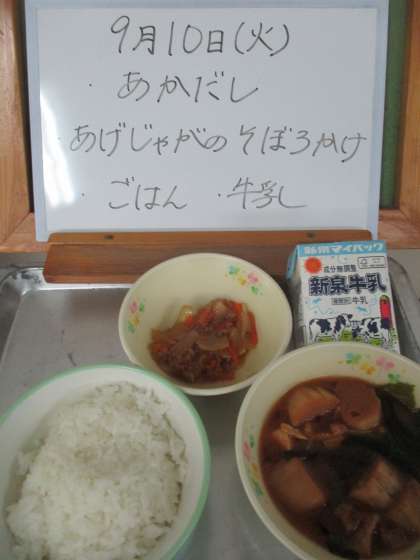 9月10日(火)
・あかだし
・あげじゃがのそぼろかけ
・ごはん ・牛乳
新泉マイパック
成分無調整
新泉牛乳
牛乳